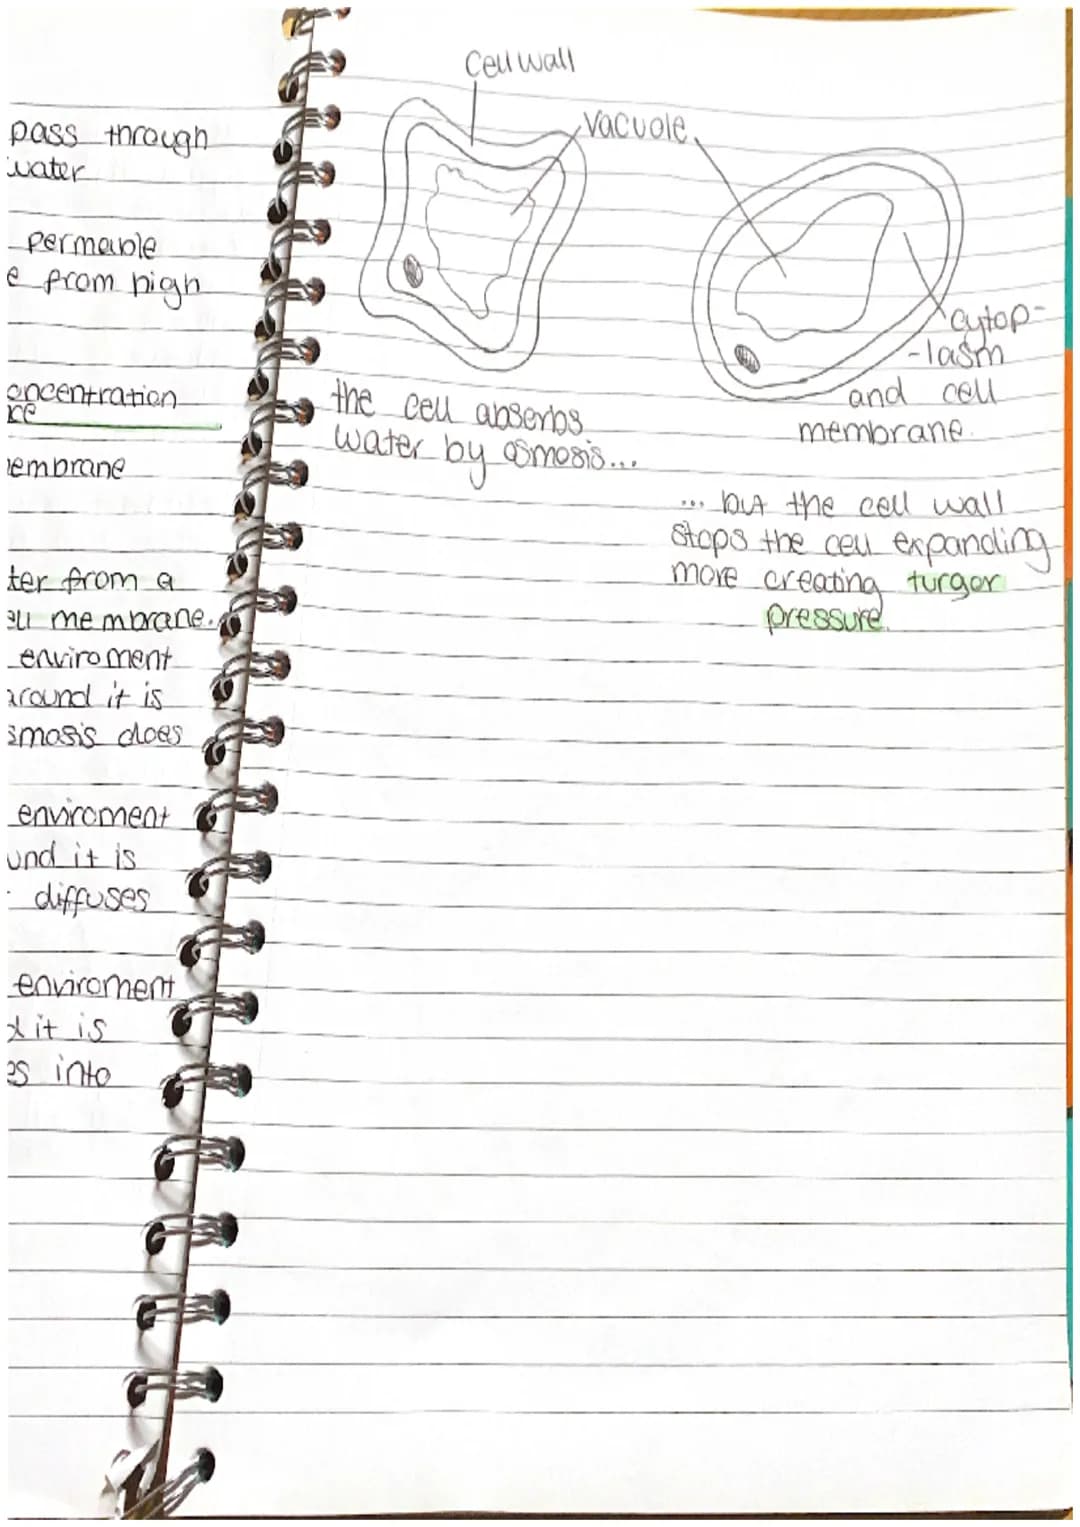 pass through
water
permable
e from high
oncentration
ce
embrane
ter from a
ell membrane.
enviroment
around it is
smosis does
enviroment
und it is
diffuses
enviroment
d it is
es into
Cell wall
vacuole
cytop-
-lasm
and cell
membrane.
the cell absorbs
water by osmosis...
... but the cell wall
stops the cell expanding
more creating turgor
pressure.